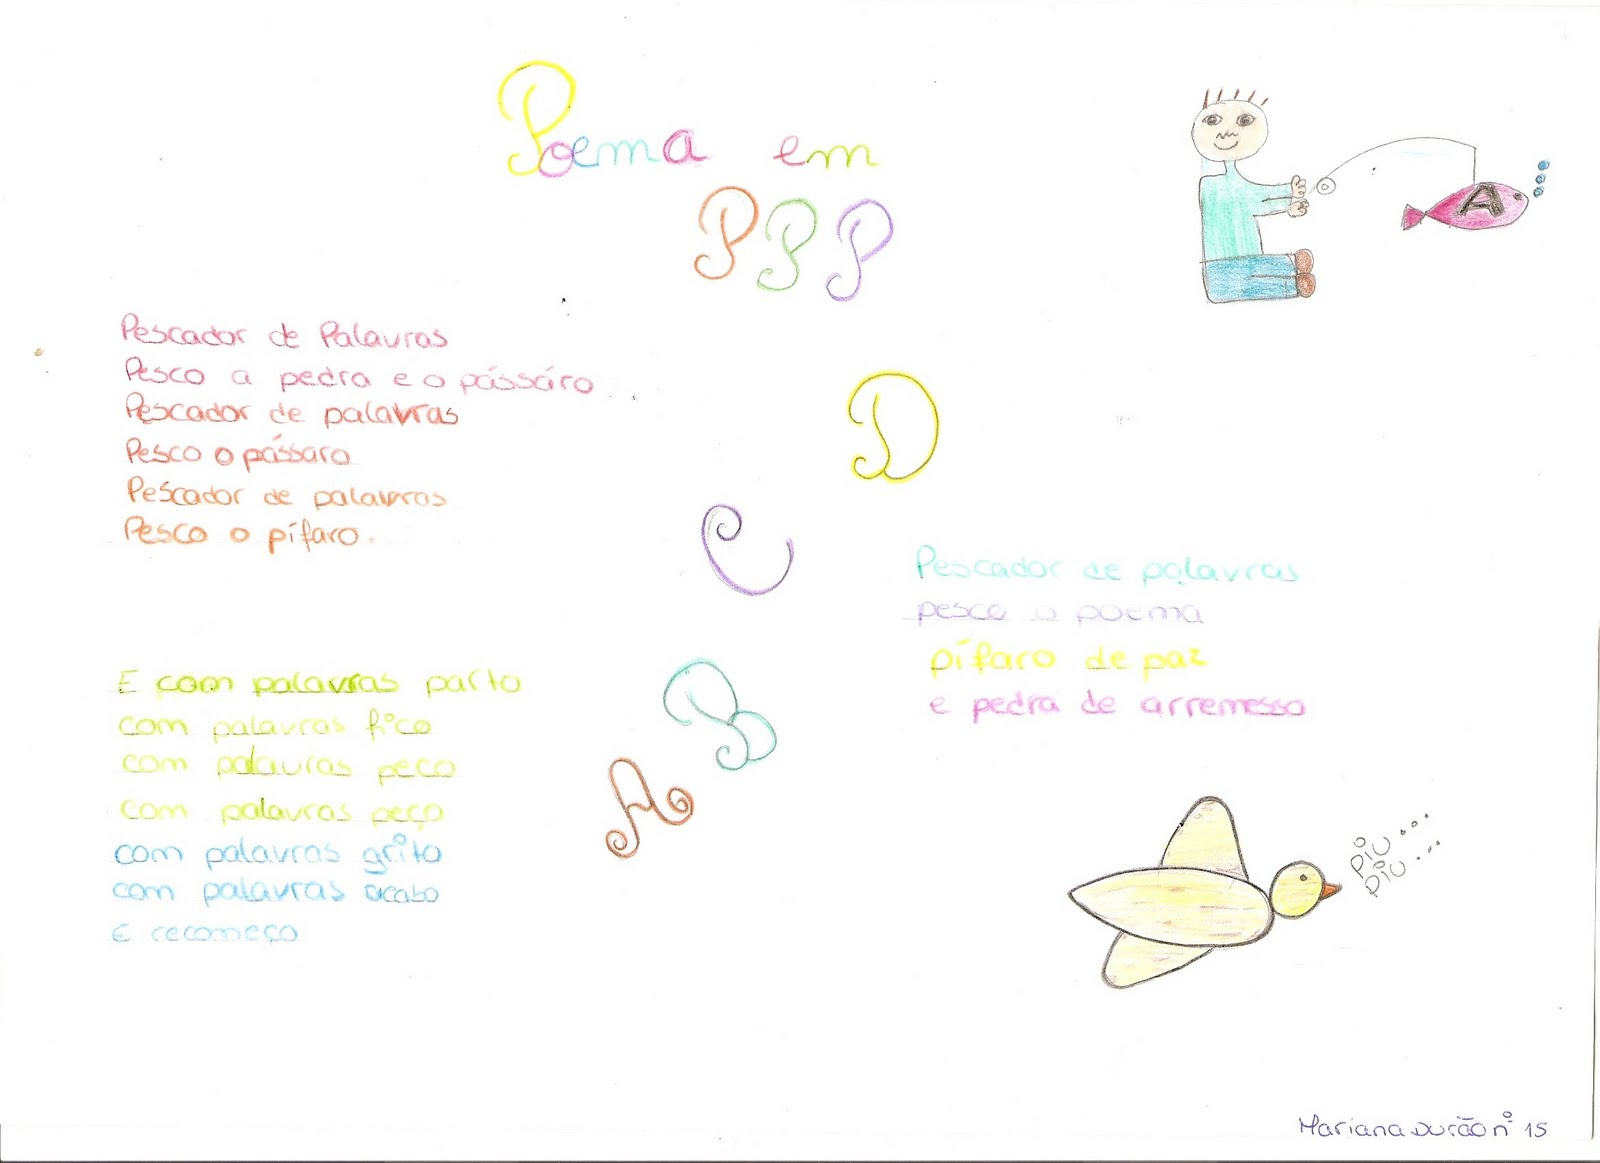 Poema em
PPP
A
Pescador de Palavras
Pesco a pedra e o pássáro
Pescador de palavras
Pesco o pássaro
Pescador de palavras
Pesco o pífaro.
D
C
Pescador de palavras
pesco o poema
pífaro de paz
e pedra de arremesso
E com palavras parto
com palavras fico
com palavras peço
com palavras peço
com palavras grito
com palavras acabo
E recomeço
B
A
Piu...
Piu...
Mariana Durão nº 15